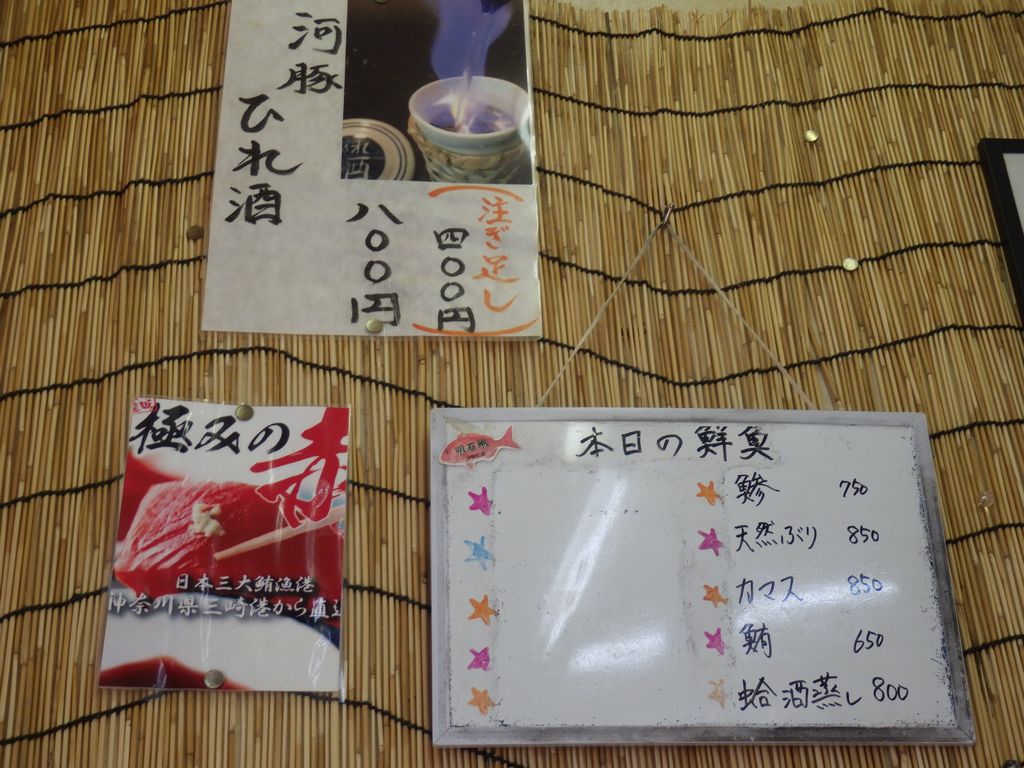 河豚
ひれ酒
八〇〇円
注ぎ足し
四〇〇円
極みの赤
日本三大鮪漁港
神奈川県三崎港から直送
明石鯛
本日の鮮魚
鯵 750
天然ぶり 850
カマス 850
鮪 650
蛤酒蒸し 800